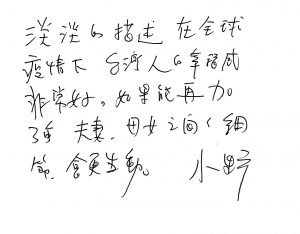 淡淡的描述 在全球
疫情下 台灣人的幸福感
非常好。如果能再加
夫妻、母女之間的細
節,會更生動。 小野